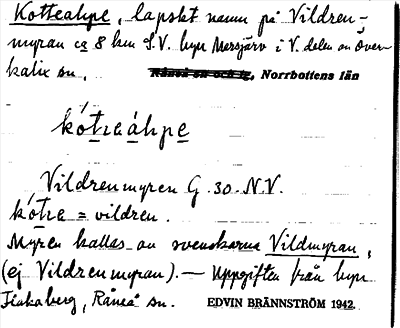 Kotteahpe, lapskt namn på Vildren-
myran ca 8 km S.V. byn Mersjärv i V. delen av Över-
kalix sn.
Råneå sn och tg, Norrbottens län
kótreáhpe
Vildrenmyren G. 30. N.V.
kótre = vildren.
Myren kallas av svenskarna Vildmyran,
(ej Vildrenmyran). — Uppgiften från byn
Finkaberg, Råneå sn. EDVIN BRÄNNSTRÖM 1942.